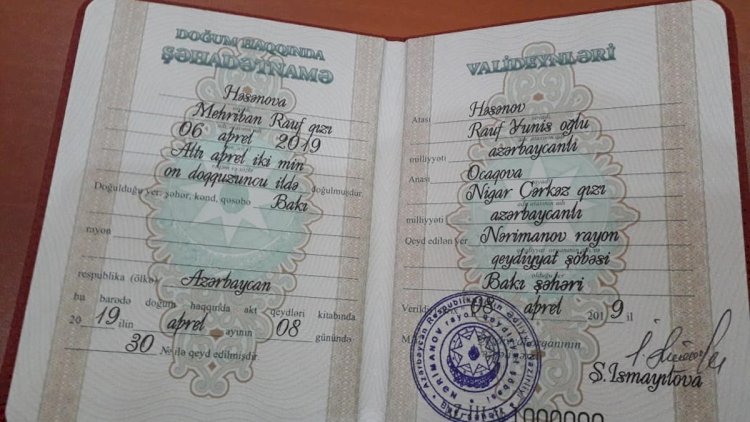 DOĞUM HAQQINDA
ŞƏHADƏTNAMƏ
Həsənova
Mehriban Rauf qızı
06 aprel 2019
Altı aprel iki min
on doqquzuncu ildə doğulmuşdur
Doğulduğu yer: şəhər, kənd, qəsəbə Bakı
rayon
respublika (ölkə) Azərbaycan
bu barədə doğum haqqında akt qeydləri kitabında
20 19 ilin aprel ayının 08 günündə
30 № ilə qeyd edilmişdir
VALİDEYNLƏRİ
Atası Həsənov
Rauf Yunis oğlu
milliyyəti azərbaycanlı
Anası Ocaqova
Nigar Çərkəz qızı
milliyyəti azərbaycanlı
Qeyd edilən yer Nərimanov rayon
qeydiyyat şöbəsi
Bakı şəhəri
Verildi 08 aprel 2019 il
Ş. İsmayılova